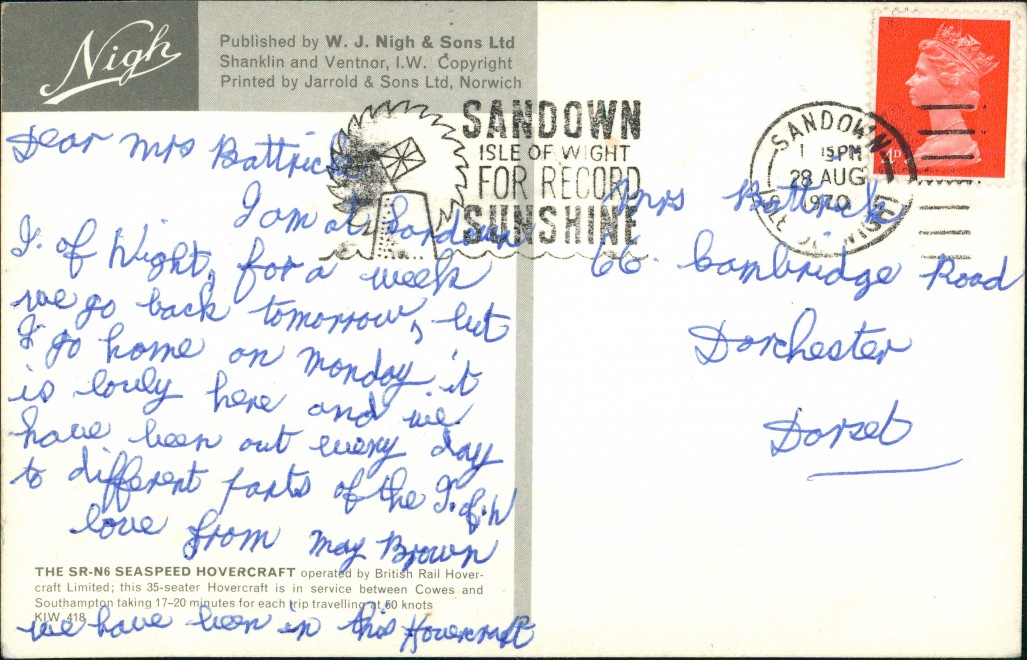 Nigh
Published by W. J. Nigh & Sons Ltd
Shanklin and Ventnor, I.W. Copyright
Printed by Jarrold & Sons Ltd, Norwich
SANDOWN
ISLE OF WIGHT
FOR RECORD
SUNSHINE
SANDOWN
1 15PM
28 AUG
1970
4D
Dear Mrs Battrick
I am at Sandown
I. of Wight, for a week
we go back tomorrow, but
I go home on Monday it
is lovly here and we
have been out every day
to different parts of the I.of.W
love from May Brown
THE SR-N6 SEASPEED HOVERCRAFT operated by British Rail Hover-
craft Limited; this 35-seater Hovercraft is in service between Cowes and
Southampton taking 17–20 minutes for each trip travelling at 50 knots
KIW 418
we have been in this Hovercraft
Mrs Battrick
66 Cambridge Road
Dorchester
Dorset